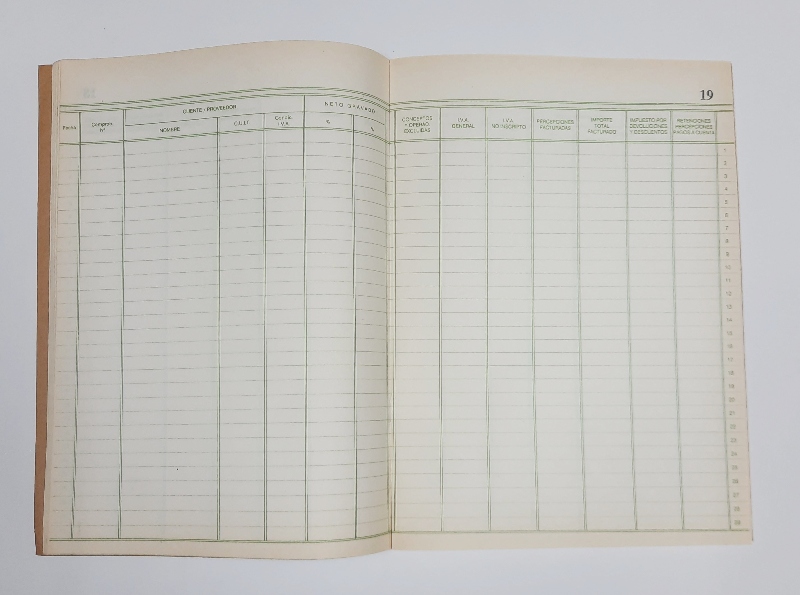 19
CLIENTE / PROVEEDOR
NETO GRAVADO
Fecha
Comprob.
Nº
NOMBRE
C.U.I.T.
Condic.
I.V.A.
%
%
CONCEPTOS
Y OPERAC.
EXCLUIDAS
I.V.A.
GENERAL
I.V.A.
NO INSCRIPTO
PERCEPCIONES
FACTURADAS
IMPORTE
TOTAL
FACTURADO
IMPUESTO POR
DEVOLUCIONES
Y DESCUENTOS
RETENCIONES
PERCEPCIONES
PAGOS A CUENTA
1
2
3
4
5
6
7
8
9
10
11
12
13
14
15
16
17
18
19
20
21
22
23
24
25
26
27
28
29